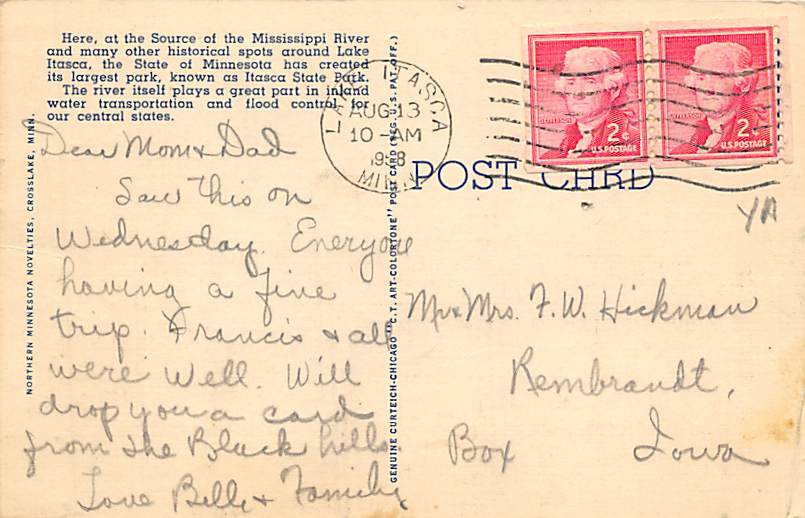 Here, at the Source of the Mississippi River
and many other historical spots around Lake
Itasca, the State of Minnesota has created
its largest park, known as Itasca State Park.
The river itself plays a great part in inland
water transportation and flood control for
our central states.
LAKE ITASCA
AUG 13
10 - AM
1958
MINN.
JEFFERSON
2¢
U.S. POSTAGE
JEFFERSON
2¢
U.S. POSTAGE
POST CARD
NORTHERN MINNESOTA NOVELTIES, CROSSLAKE, MINN.
GENUINE CURTEICH-CHICAGO "C.T. ART-COLORTONE" POST CARD (REG. U.S. PAT. OFF.)
Dear Mom & Dad
Saw this on
Wednesday. Everyone
having a fine
trip. Francis & all
were well. Will
drop you a card
from the Black hills
Love Bill & Family
Mr & Mrs. F. W. Hickman
Rembrandt,
Box Iowa